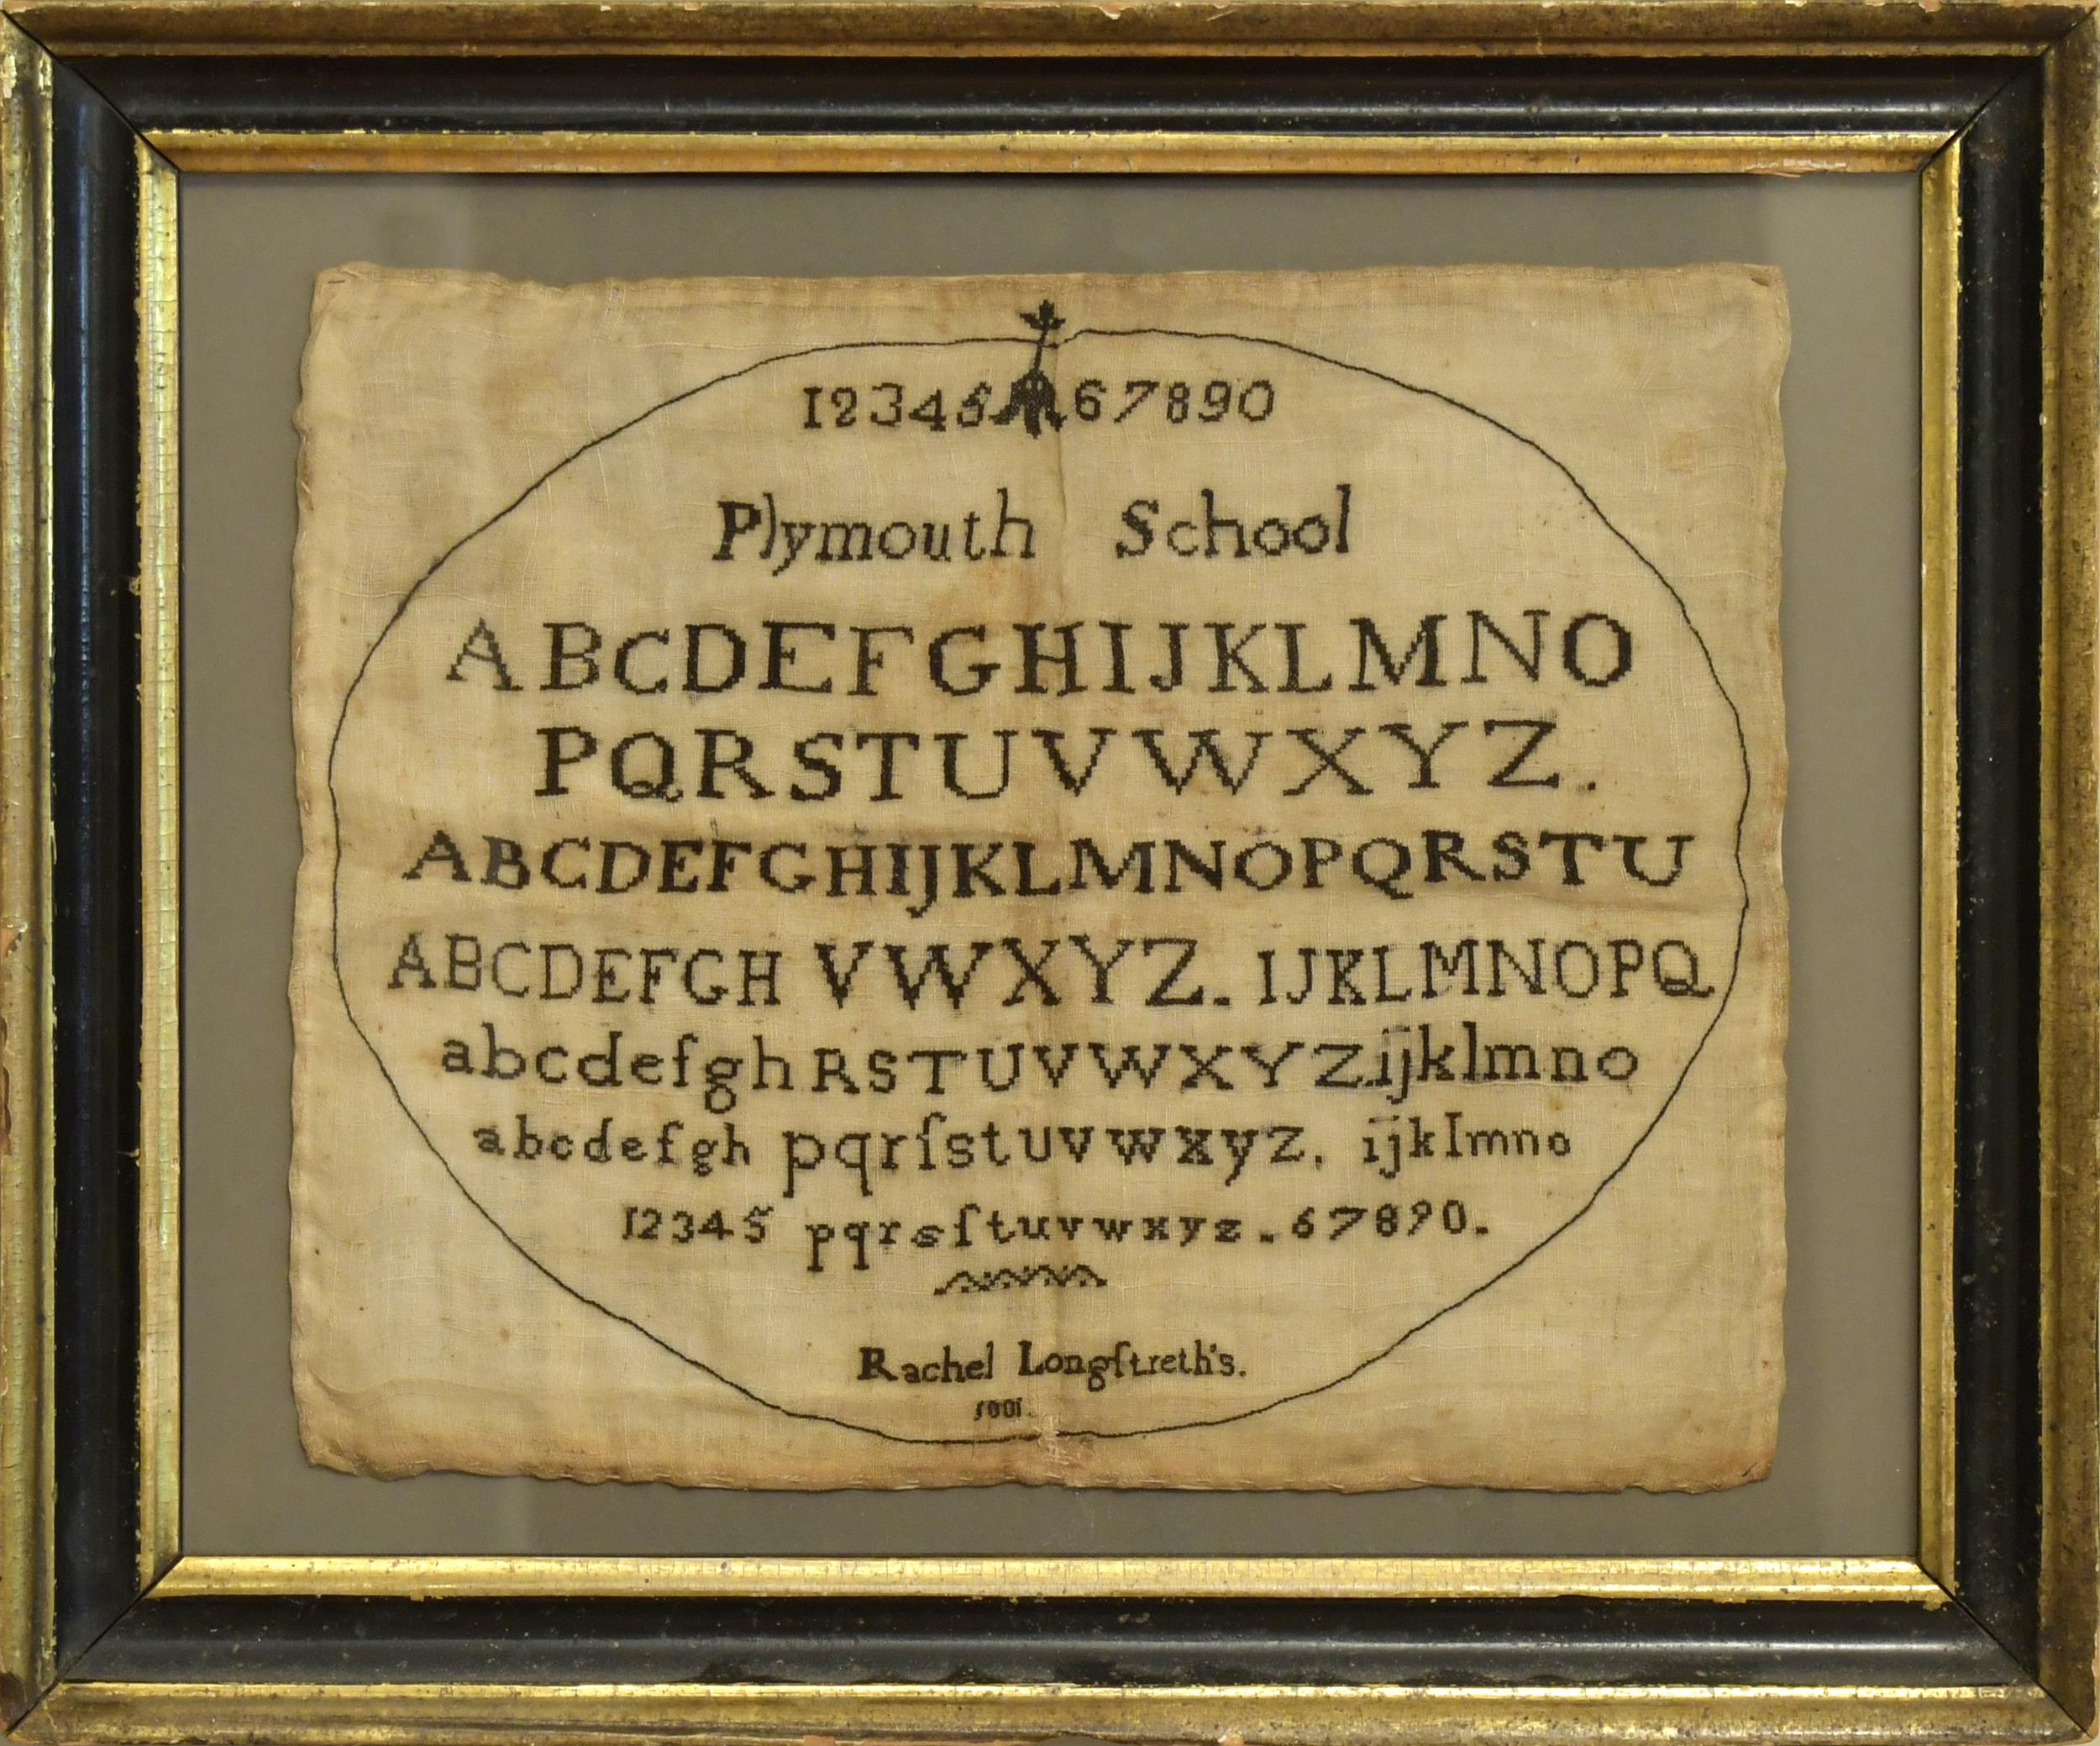 12345 67890
Plymouth School
ABCDEFGHIJKLMNO
PQRSTUVWXYZ.
ABCDEFGHIJKLMNOPQRSTU
ABCDEFGH VWXYZ. IJKLMNOPQ
abcdefgh RSTUVWXYZ. ijklmno
abcdefgh pqrſstuvwxyz. ijklmno
12345 pqrsſtuvwxyz. 67890.
Rachel Longſtreth's.